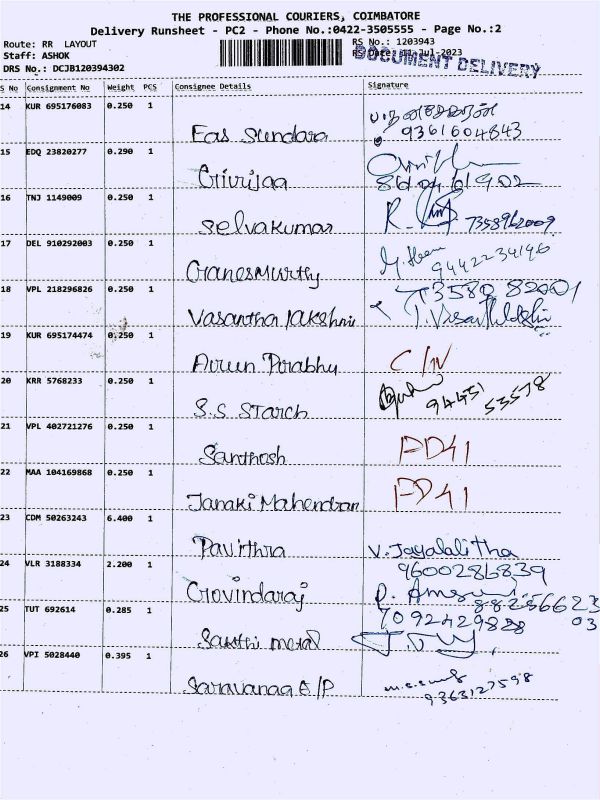 THE PROFESSIONAL COURIERS, COIMBATORE
Delivery Runsheet - PC2 - Phone No.:0422-3505555 - Page No.:2
Route: RR LAYOUT RS No.: 1203943
Staff: ASHOK RS Date: 11-Jul-2023
DOCUMENT DELIVERY
DRS No.: DCJB120394302
S No Consignment No Weight PCS Consignee Details Signature
14 KUR 695176083 0.250 1
Eas Sundara 9361604843
15 EDQ 23820277 0.290 1
Girijaa
16 TNJ 1149009 0.250 1
Selvakumar 7358962009
17 DEL 910292003 0.250 1
Ganesmurthy 9442234196
18 VPL 218296826 0.250 1 73580 82001
Vasantha lakshmi T. Vasanthalakshmi
19 KUR 695174474 0.250 1
Arun Prabhu C/N
20 KRR 5768233 0.250 1
S.S Starch 94451 53578
21 VPL 402721276 0.250 1
Santhosh PD41
22 MAA 104169868 0.250 1
Janaki Mahendran PD41
23 CDM 50263243 6.400 1
Pavithra V. Jayalalitha
24 VLR 3188334 2.200 1 9600286839
Govindaraj
25 TUT 692614 0.285 1 7092429828
Santhi metal
26 VPI 5028440 0.395 1
Saravanaa E/P
9363127598